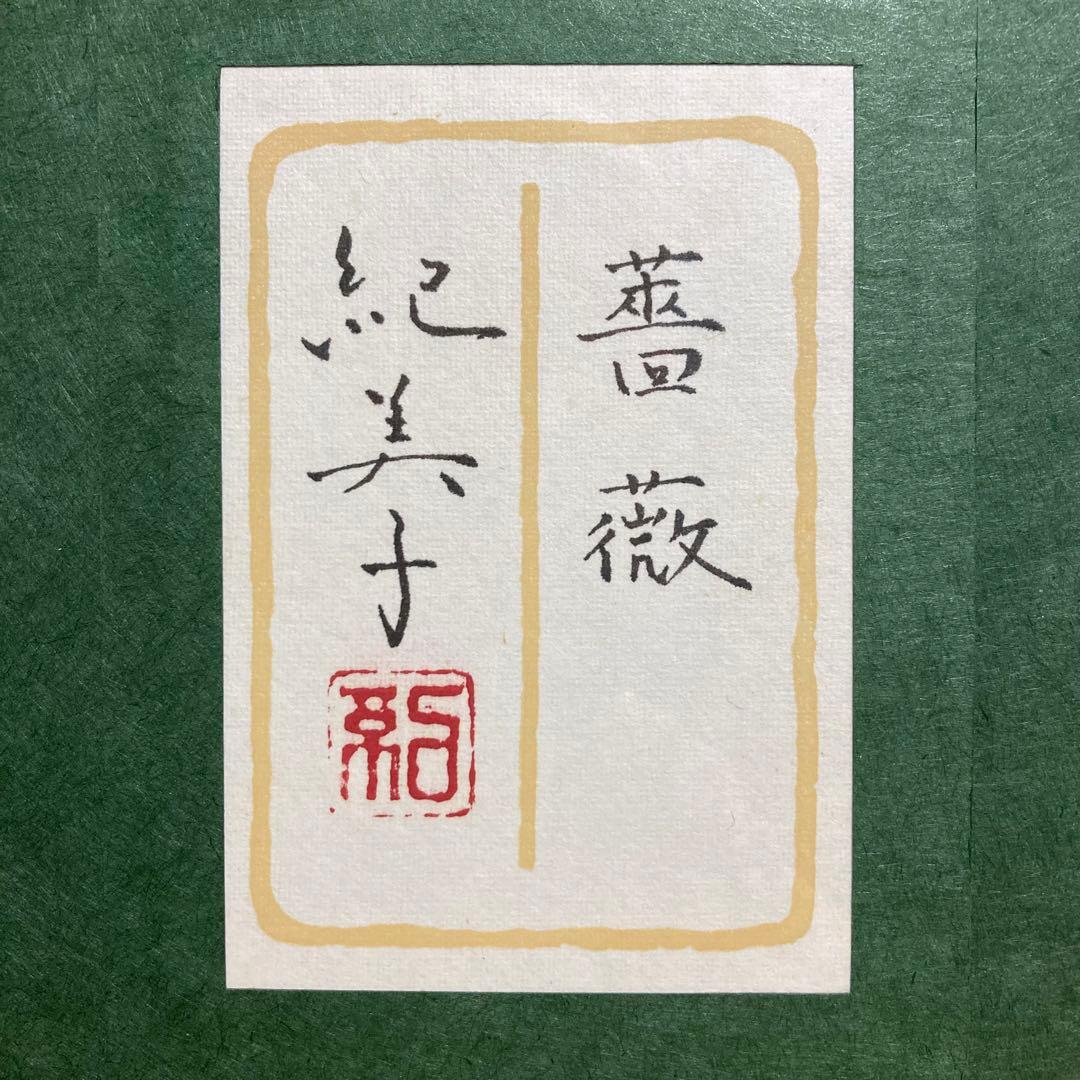 薔薇
紀美子